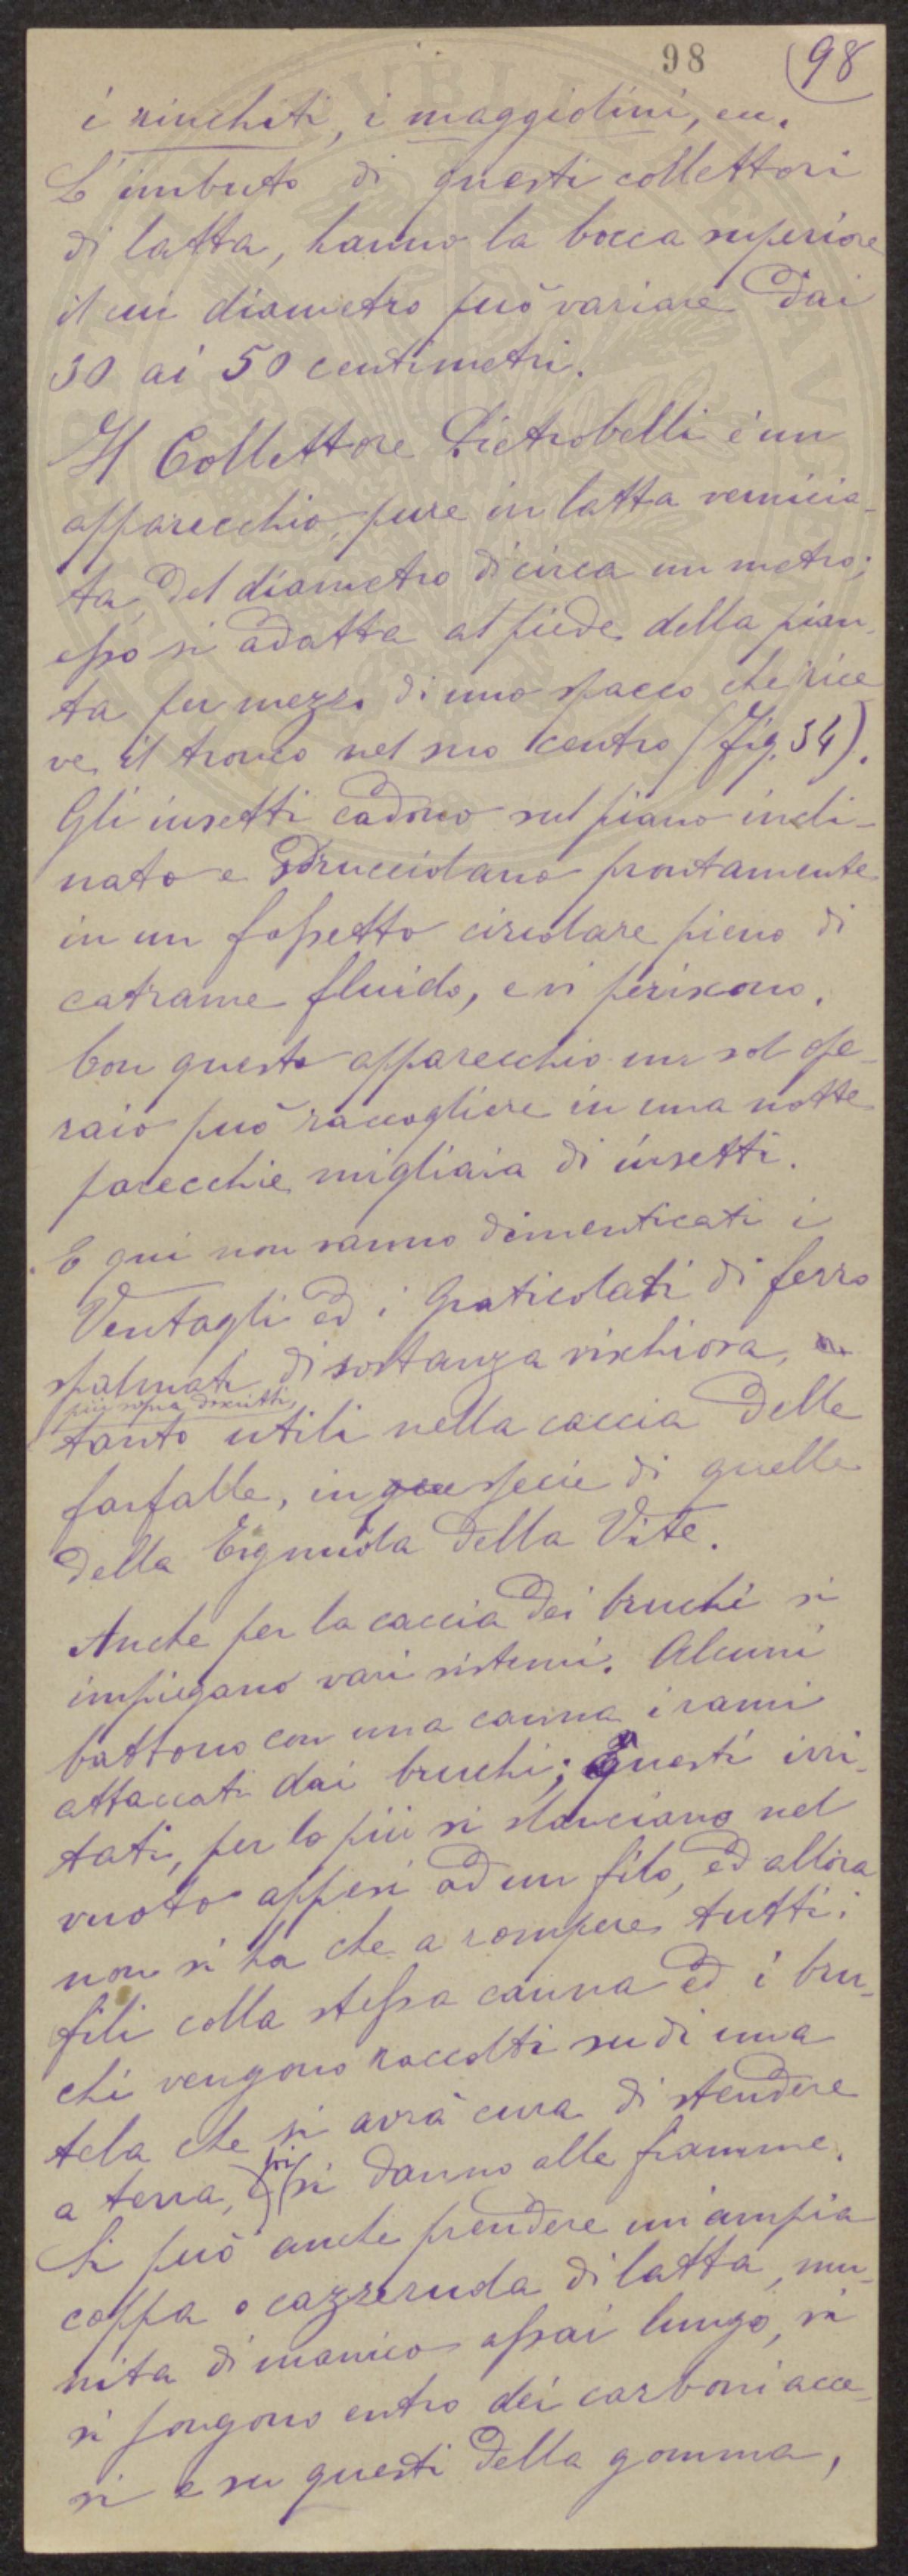 98 98
i rinchiti, i maggiolini, ecc.
L'imbuto di questi collettori
di latta, hanno la bocca superiore
il cui diametro può variare dai
30 ai 50 centimetri.
Il Collettore Pietrobelli è un
apparecchio, pure in latta vernicia-
ta, del diametro di circa un metro;
esso si adatta al piede della pian-
ta per mezzo di uno spacco che rice
ve il tronco nel suo centro (Fig. 34).
Gli insetti cadono sul piano incli-
nato e sdrucciolano prontamente
in un fossetto circolare pieno di
catrame fluido, e vi periscono.
Con questo apparecchio un sol ope-
raio può raccogliere in una notte
parecchie migliaia di insetti.
E qui non vanno dimenticati i
Ventagli ed i Graticolati di ferro
spalmati di sostanza vischiosa,
più sopra descritti,
tanto utili nella caccia delle
farfalle, in specie di quelle
della Tignuola della Vite.
Anche per la caccia dei bruchi si
impiegano vari sistemi. Alcuni
battono con una canna i rami
attaccati dai bruchi; questi irri-
tati, per lo più si slanciano nel
vuoto appesi ad un filo, ed allora
non si ha che a rompere tutti i
fili colla stessa canna ed i bru-
chi vengono raccolti su di una
tela che si avrà cura di stendere
a terra, si danno alle fiamme.
Si può anche prendere un'ampia
coppa o cazzeruola di latta, mu-
nita di manico assai lungo, vi
si pongono entro dei carboni acce-
si e su questi della gomma,